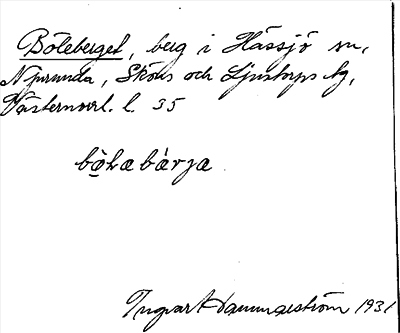 Böleberget, berg i Hässjö sn,
Njurunda, Sköns och Ljustorps tg,
Västernorrl. l. 35
bö̀ɫæbǽrjæ
Ingvar Hammarström 1931